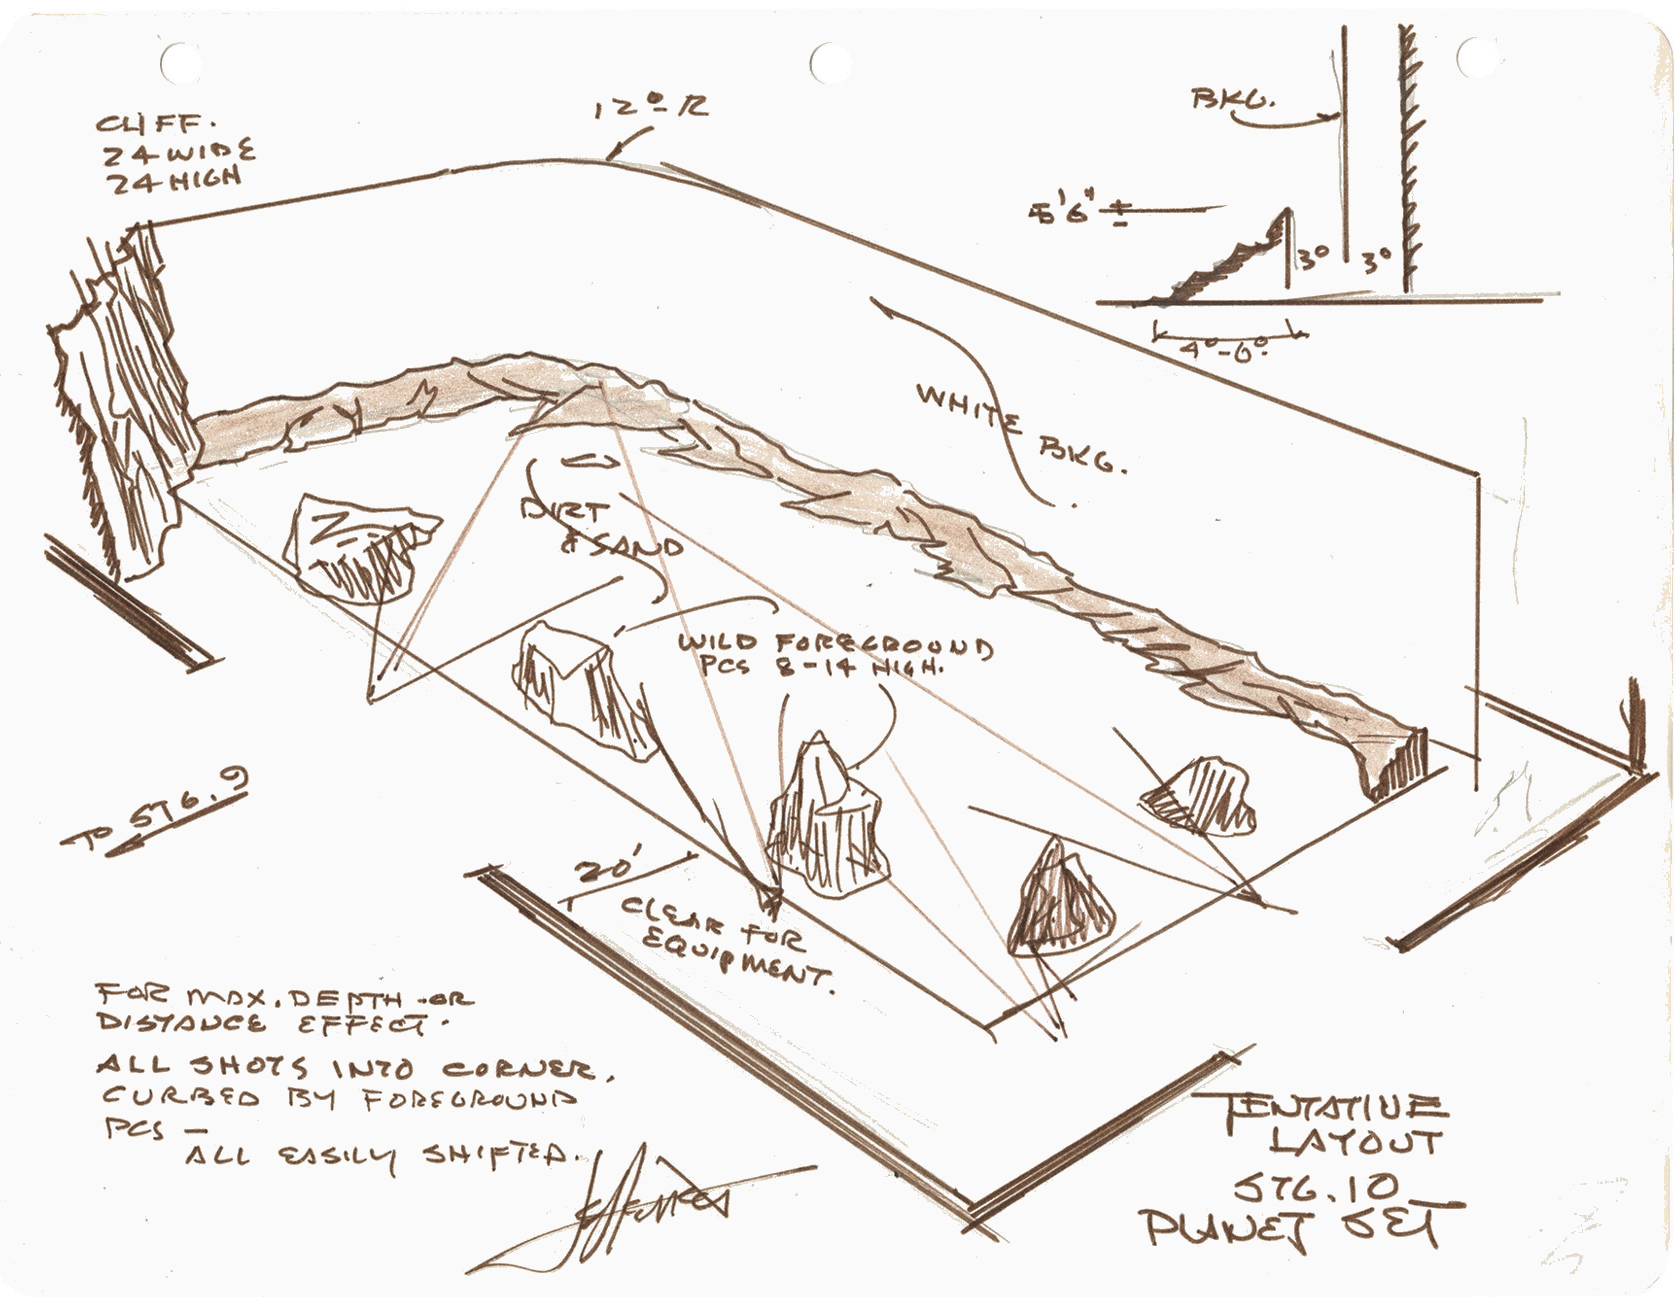 CLIFF.
24 WIDE
24 HIGH
12º R
BKG.
5'6" ±
3º
3º
4º-6º
WHITE
BKG.
DIRT
& SAND
WILD FOREGROUND
PCS 8-14 HIGH.
TO STG. 9
20'
CLEAR FOR
EQUIPMENT.
FOR MAX. DEPTH OR
DISTANCE EFFECT.
ALL SHOTS INTO CORNER.
CURBED BY FOREGROUND
PCS —
ALL EASILY SHIFTED.
Jefferies
TENTATIVE
LAYOUT
STG. 10
PLANET SET